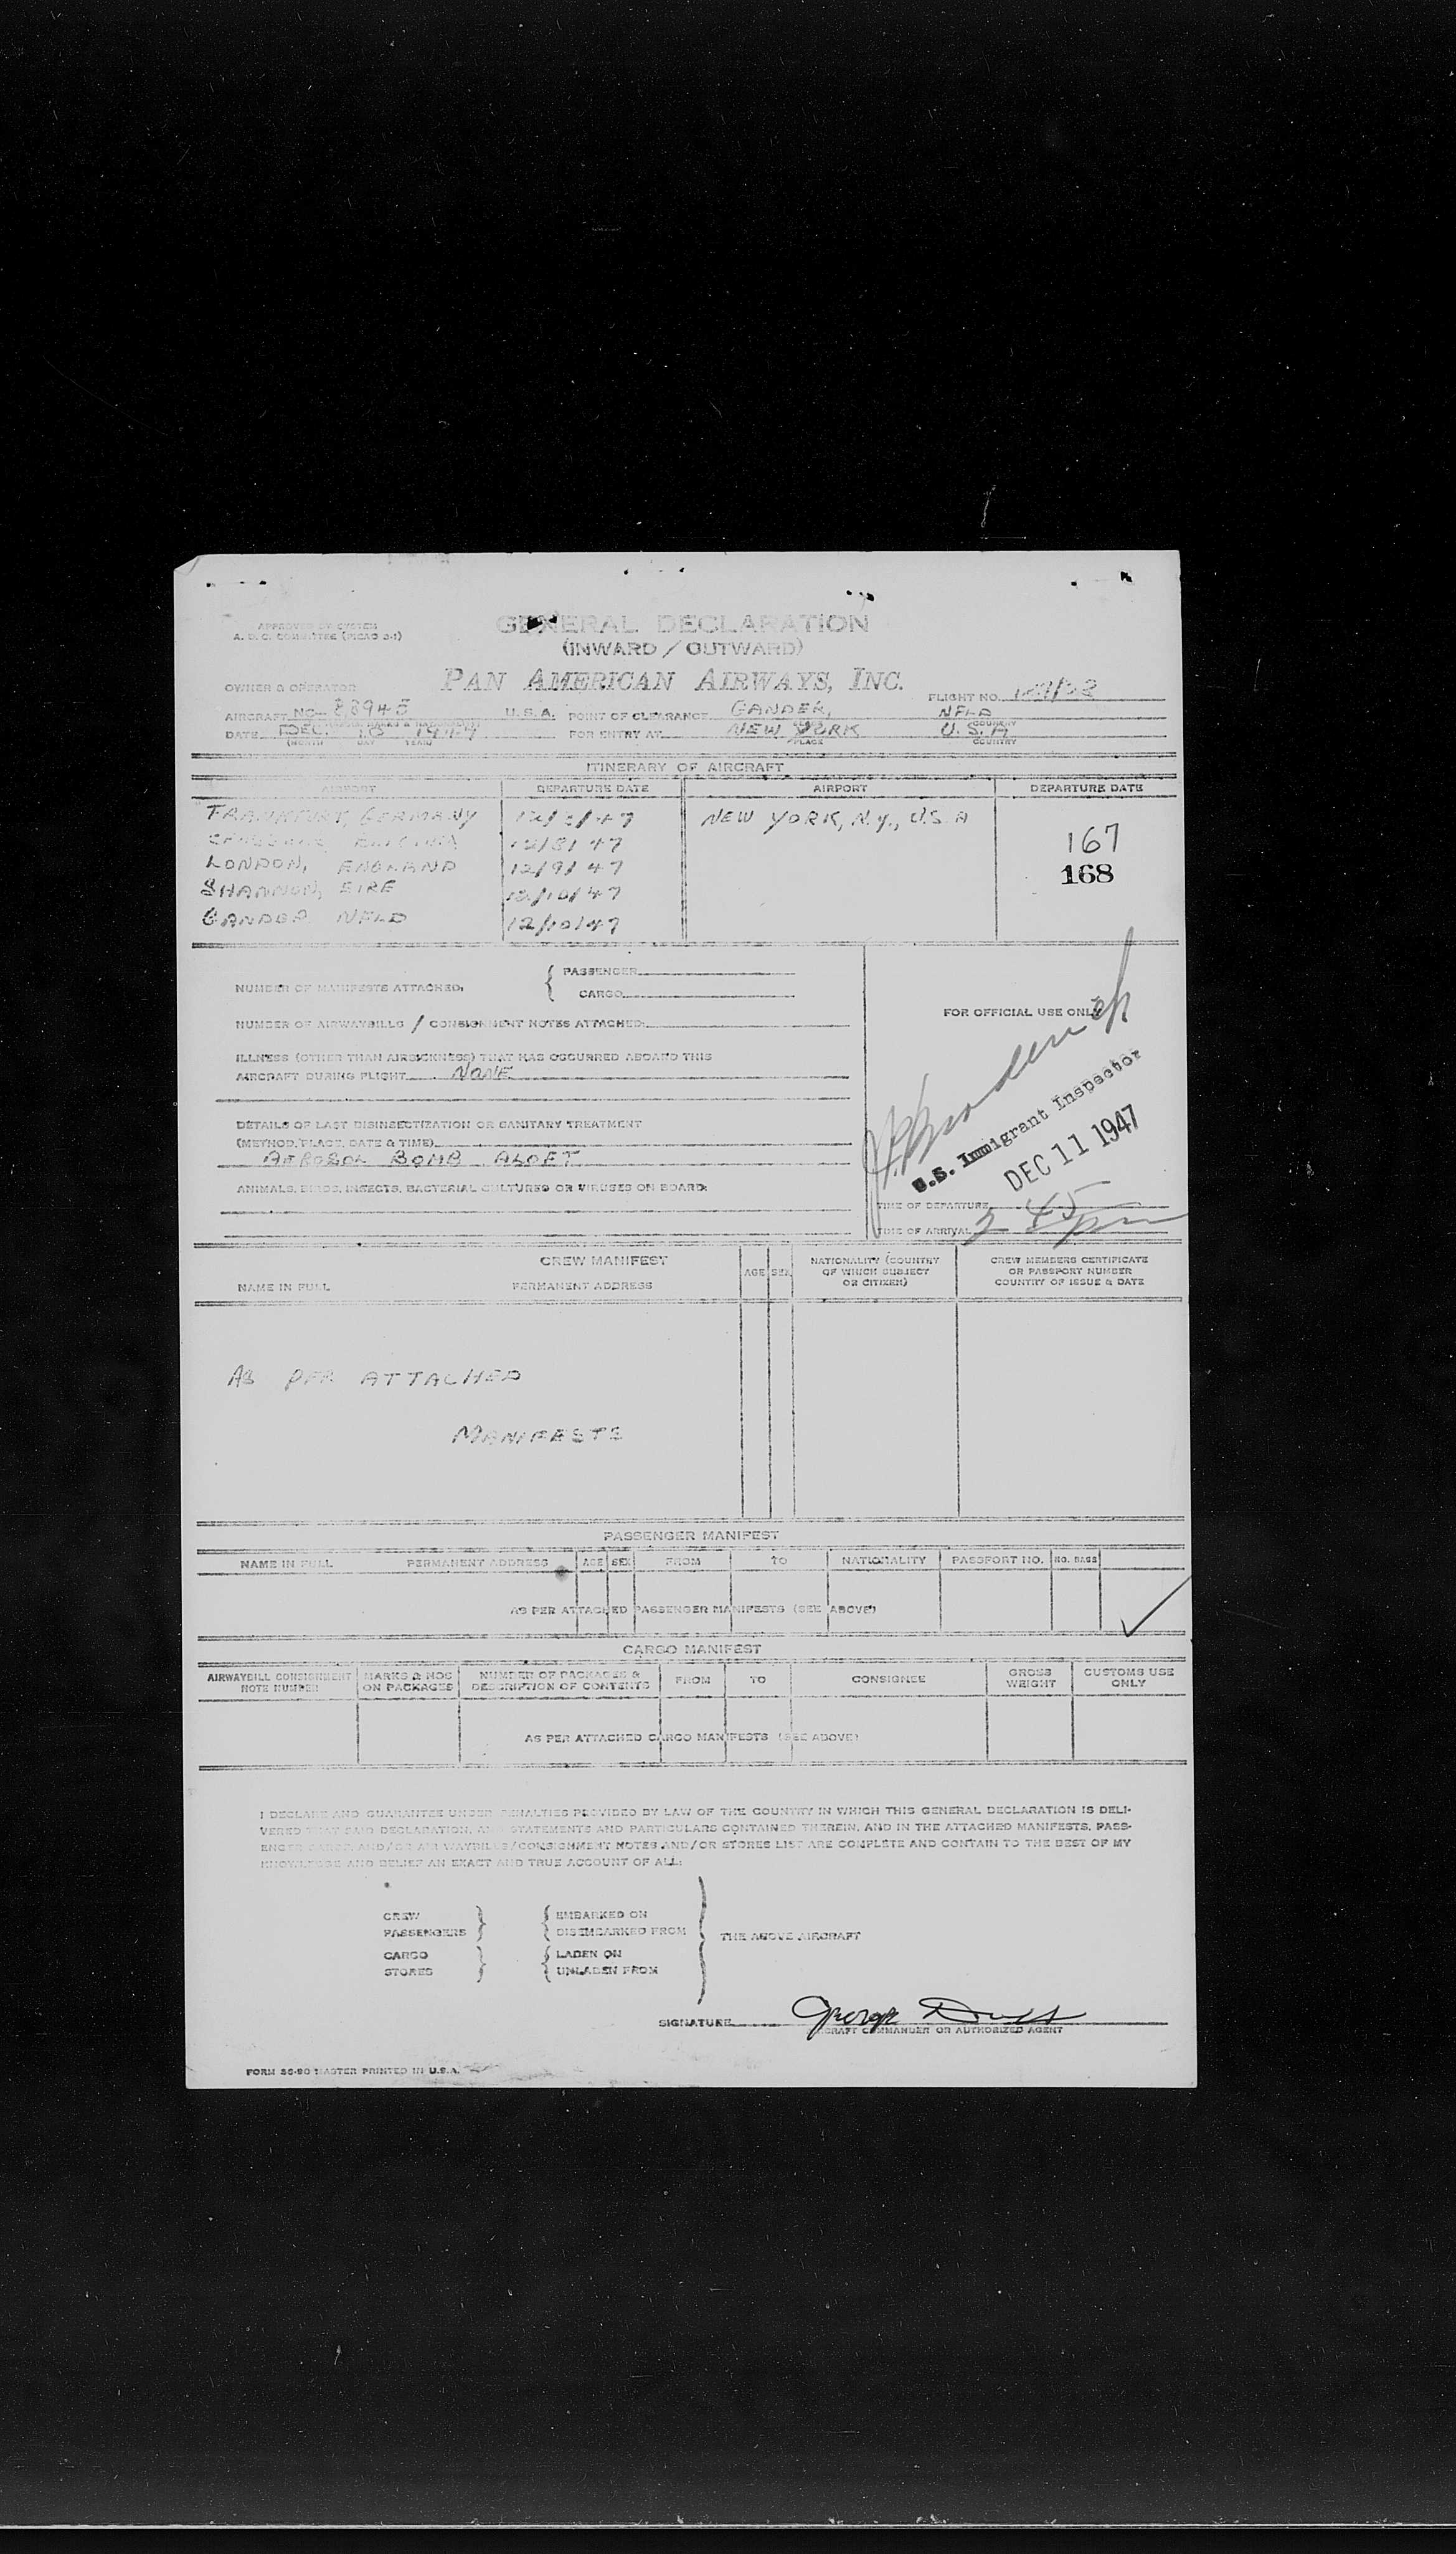 APPROVED BY SYSTEM
A. D. C. COMMITTEE (PICAO 3-1)
GENERAL DECLARATION
(INWARD / OUTWARD)
PAN AMERICAN AIRWAYS, INC.
OWNER & OPERATOR
FLIGHT NO.
AIRCRAFT NC- 88945 U. S. A. POINT OF CLEARANCE GANDER, NFLD
DATE DEC. 10 1947 FOR ENTRY AT NEW YORK U. S. A
(MONTH DAY YEAR) PLACE COUNTRY
ITINERARY OF AIRCRAFT
AIRPORT DEPARTURE DATE AIRPORT DEPARTURE DATE
FRANKFURT, GERMANY NEW YORK, N.Y., U.S.A
12/8/47 167
LONDON, ENGLAND 12/9/47 168
SHANNON, EIRE 12/10/47
GANDER NFLD 12/10/47
NUMBER OF MANIFESTS ATTACHED: { PASSENGER
CARGO
FOR OFFICIAL USE ONLY
NUMBER OF AIRWAYBILLS / CONSIGNMENT NOTES ATTACHED:
ILLNESS (OTHER THAN AIRSICKNESS) THAT HAS OCCURRED ABOARD THIS
AIRCRAFT DURING FLIGHT NONE
U.S. Immigrant Inspector
DEC 11 1947
DETAILS OF LAST DISINSECTIZATION OR SANITARY TREATMENT
(METHOD, PLACE, DATE & TIME)
AEROSOL BOMB ALOFT
ANIMALS, BIRDS, INSECTS, BACTERIAL CULTURES OR VIRUSES ON BOARD:
TIME OF DEPARTURE
TIME OF ARRIVAL 3 45 pm
CREW MANIFEST
NAME IN FULL PERMANENT ADDRESS AGE SEX NATIONALITY (COUNTRY OF WHICH SUBJECT OR CITIZEN) CREW MEMBERS CERTIFICATE OR PASSPORT NUMBER COUNTRY OF ISSUE & DATE
AS PER ATTACHED
MANIFESTS
PASSENGER MANIFEST
NAME IN FULL PERMANENT ADDRESS AGE SEX FROM TO NATIONALITY PASSPORT NO. NO. BAGS
AS PER ATTACHED PASSENGER MANIFESTS (SEE ABOVE)
CARGO MANIFEST
AIRWAYBILL CONSIGNMENT NOTE NUMBER MARKS & NOS ON PACKAGES NUMBER OF PACKAGES & DESCRIPTION OF CONTENTS FROM TO CONSIGNEE GROSS WEIGHT CUSTOMS USE ONLY
AS PER ATTACHED CARGO MANIFESTS (SEE ABOVE)
I DECLARE AND GUARANTEE UNDER PENALTIES PROVIDED BY LAW OF THE COUNTRY IN WHICH THIS GENERAL DECLARATION IS DELI-
VERED THAT SAID DECLARATION, AND STATEMENTS AND PARTICULARS CONTAINED THEREIN, AND IN THE ATTACHED MANIFESTS, PASS-
ENGER CARGO AND/OR AIR WAYBILLS/CONSIGNMENT NOTES AND/OR STORES LIST ARE COMPLETE AND CONTAIN TO THE BEST OF MY
KNOWLEDGE AND BELIEF AN EXACT AND TRUE ACCOUNT OF ALL:
CREW EMBARKED ON
PASSENGERS DISEMBARKED FROM THE ABOVE AIRCRAFT
CARGO LADEN ON
STORES UNLADEN FROM
SIGNATURE George
CRAFT COMMANDER OR AUTHORIZED AGENT
FORM 36-90 MASTER PRINTED IN U.S.A.